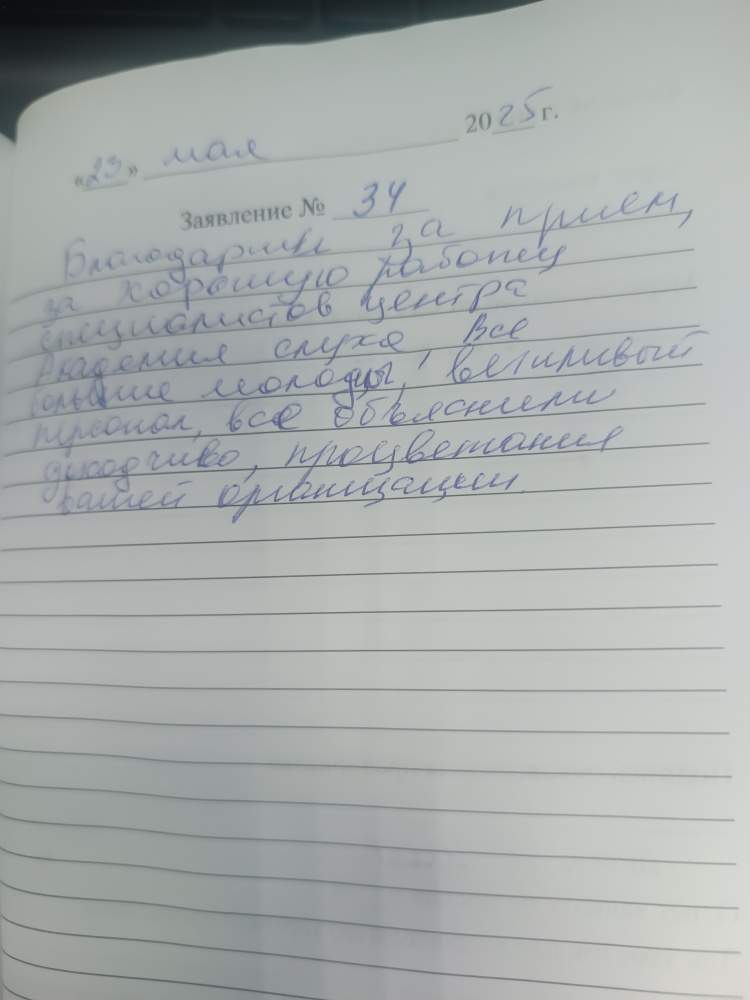 «23» мая 2025 г.
Заявление № 34
Благодарим за прием,
за хорошую работу
специалистов центра
Академия слуха. Все
большие молодцы, вежливый
персонал, все объяснили
доходчиво, процветания
вашей организации.